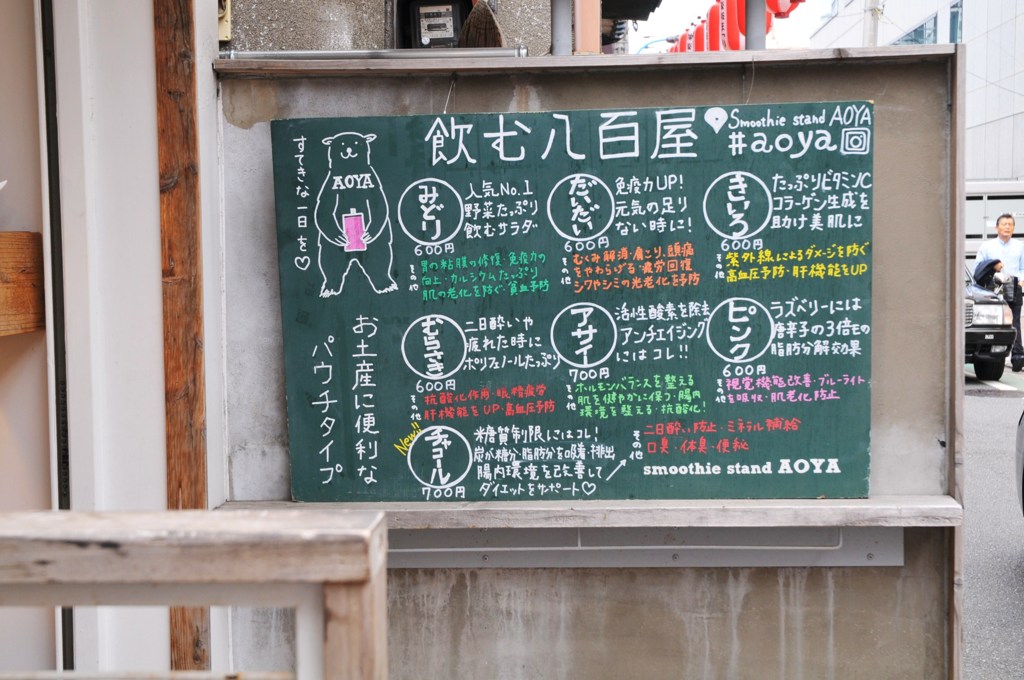 飲む八百屋
Smoothie stand AOYA
#aoya
すてきな一日を♡
AOYA
お土産に便利な
パウチタイプ
みどり
600円
人気No.1
野菜たっぷり
飲むサラダ
その他
胃の粘膜の修復・免疫力の
向上・カルシウムたっぷり
肌の老化を防ぐ・貧血予防
だいだい
600円
免疫力UP!
元気の足り
ない時に!
その他
むくみ解消・肩こり、頭痛
をやわらげる・疲労回復
シワやシミの光老化を予防
きいろ
600円
たっぷりビタミンC
コラーゲン生成を
助け美肌に
その他
紫外線によるダメージを防ぐ
高血圧予防・肝機能をUP
むらさき
600円
二日酔いや
疲れた時に
ポリフェノールたっぷり
その他
抗酸化作用・眼精疲労
肝機能をUP・高血圧予防
アサイー
700円
活性酸素を除去
アンチエイジング
にはコレ!!
その他
ホルモンバランスを整える
肌を健やかに保つ・腸内
環境を整える・抗酸化!
ピンク
600円
ラズベリーには
唐辛子の3倍もの
脂肪分解効果
その他
視覚機能改善・ブルーライト
を吸収・肌老化防止
New!!
チャコール
700円
糖質制限にはコレ!
炭が糖分・脂肪分を吸着・排出
腸内環境を改善して
ダイエットをサポート♡
その他
二日酔い防止・ミネラル補給
口臭・体臭・便秘
smoothie stand AOYA